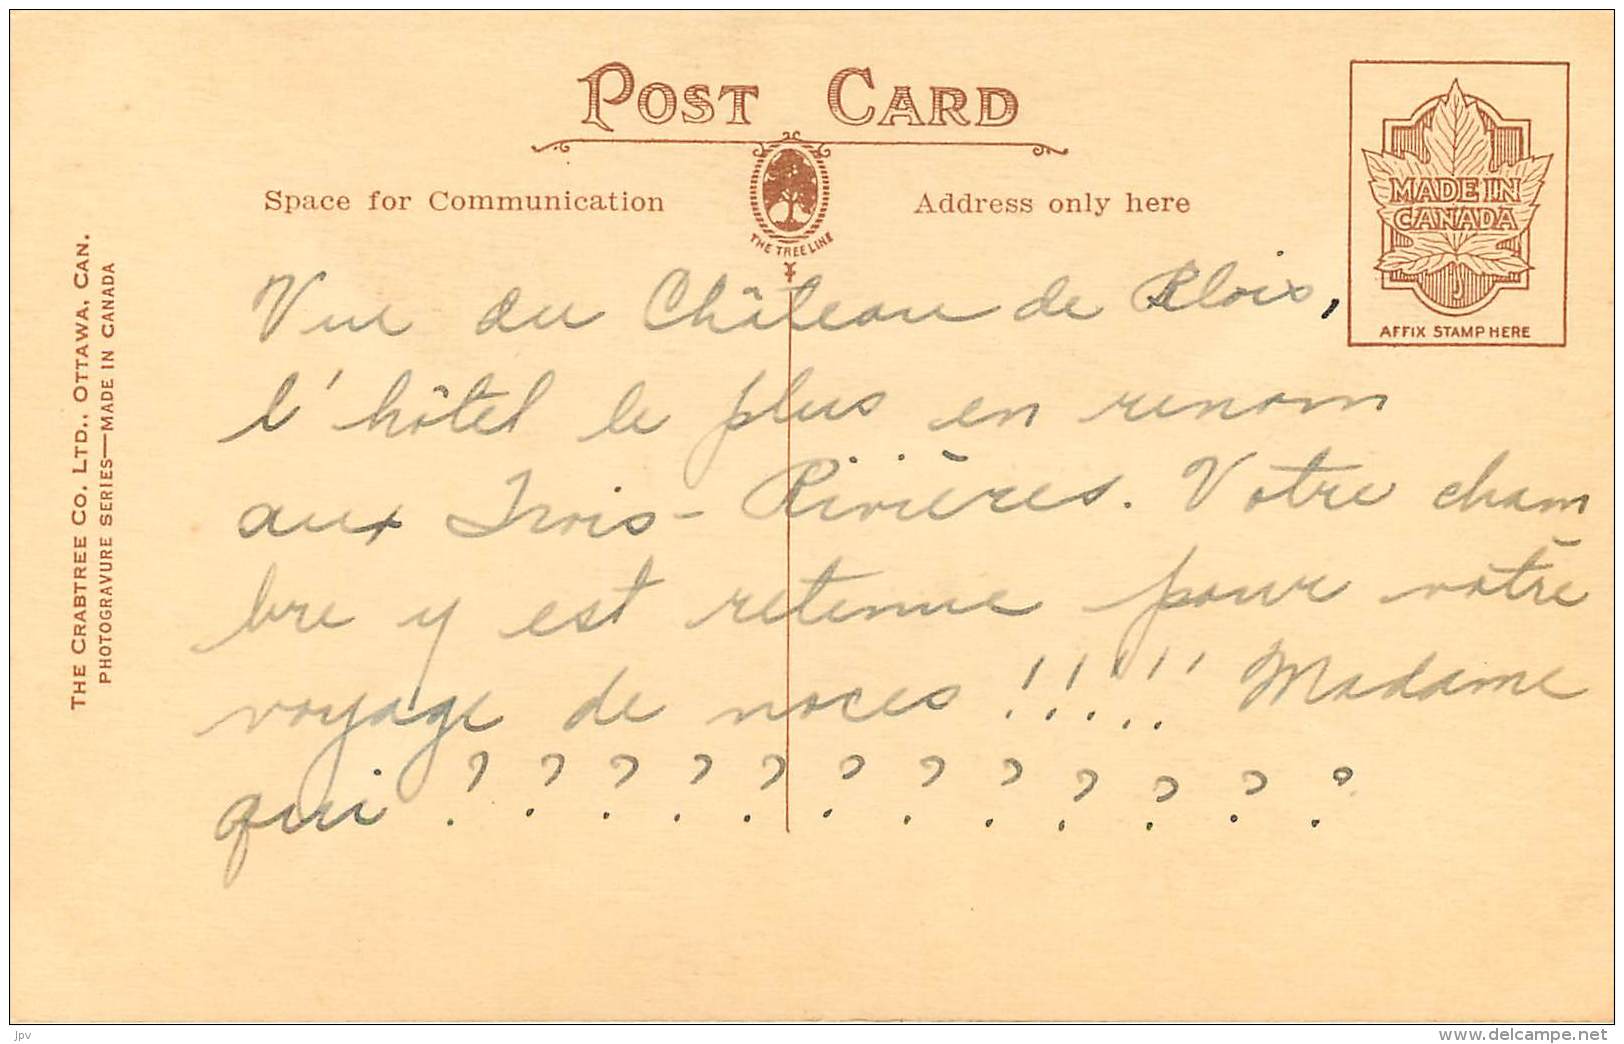 POST CARD
Space for Communication
Address only here
THE TREE LINE
MADE IN
CANADA
AFFIX STAMP HERE
THE CRABTREE CO. LTD., OTTAWA, CAN.
PHOTOGRAVURE SERIES—MADE IN CANADA
Vue du Château de Blois,
l'hôtel le plus en renom
aux Trois-Rivières. Votre cham
bre y est retenue pour vôtre
voyage de noces !!!!! Madame
qui ????????????
jpv
www.delcampe.net